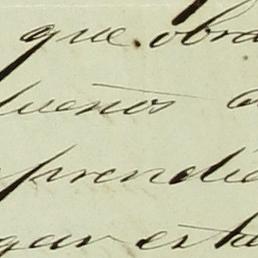 que obra
dueños a
prendie
gar esta